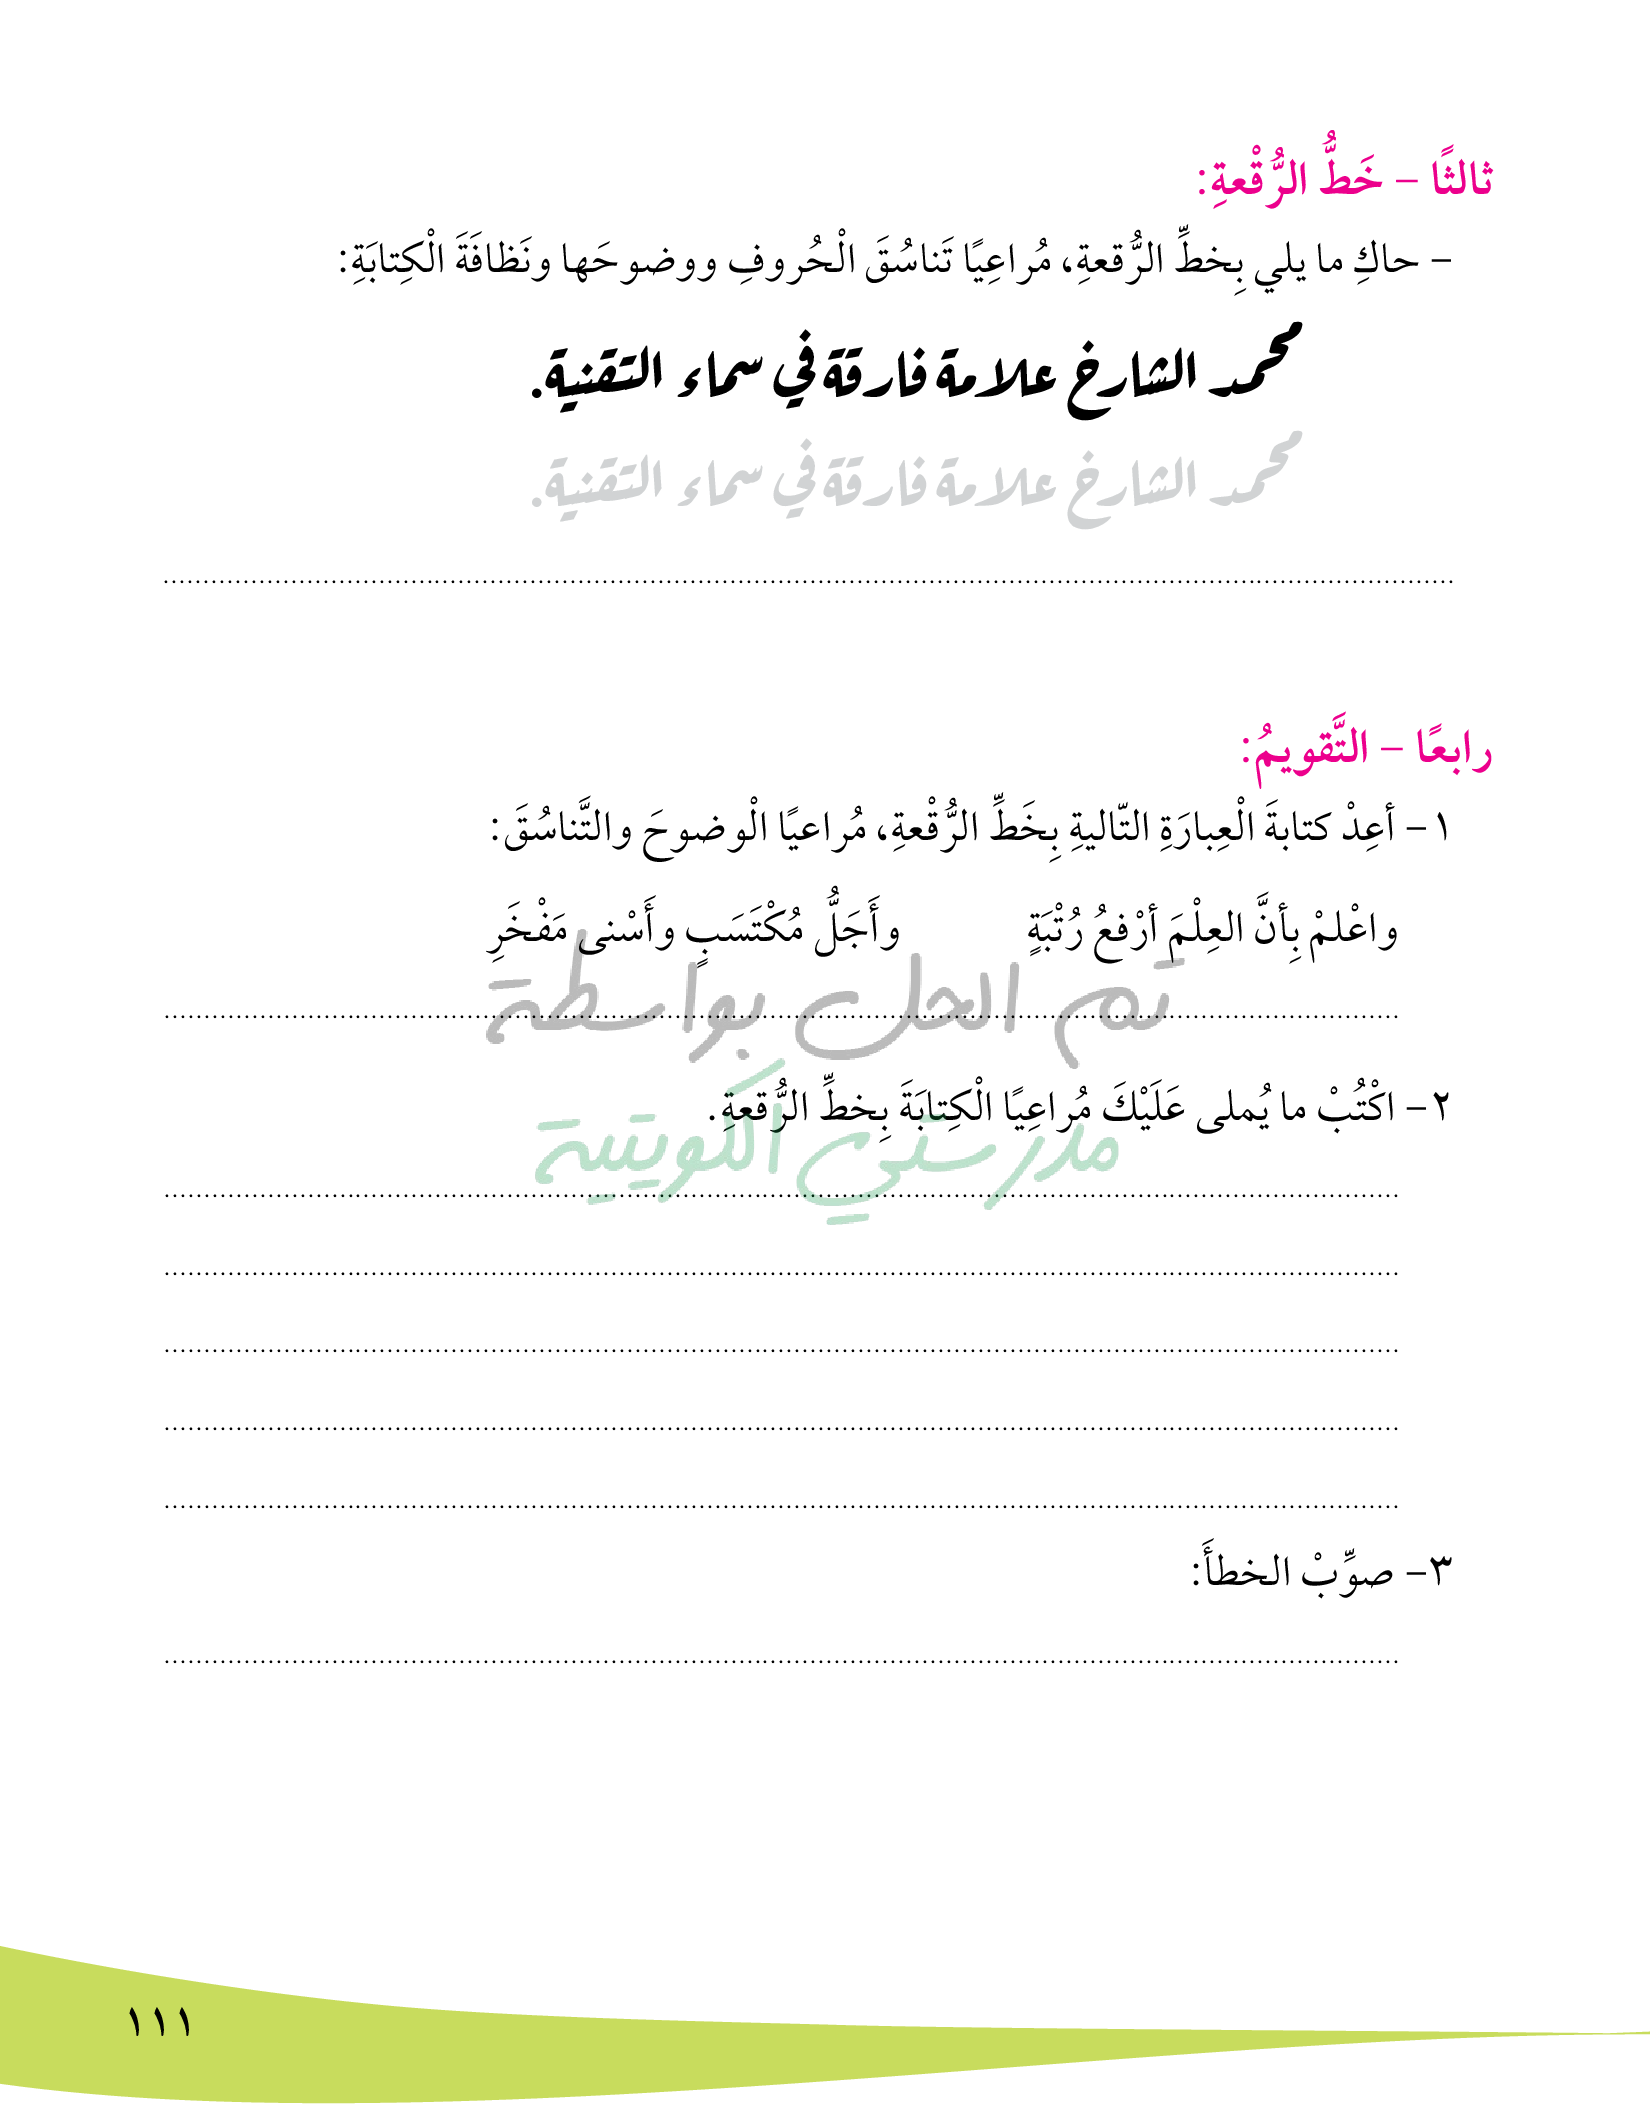 ثالثًا – خَطُّ الرُّقْعةِ:
– حاكِ ما يلي بِخطِّ الرُّقعةِ، مُراعِيًا تَناسُقَ الْحُروفِ ووضوحَها ونَظافَةَ الْكِتابَةِ:
محمد الشارخ علامة فارقة في سماء التقنية.
محمد الشارخ علامة فارقة في سماء التقنية.
رابعًا – التَّقويمُ:
١– أعِدْ كتابةَ الْعِبارَةِ التّاليةِ بِخَطِّ الرُّقْعةِ، مُراعيًا الْوضوحَ والتَّناسُقَ:
واعْلمْ بِأنَّ العِلْمَ أرْفعُ رُتْبَةٍ وأَجَلُّ مُكْتَسَبٍ وأَسْنى مَفْخَرِ
تم الحل بواسطة
٢– اكْتُبْ ما يُملى عَلَيْكَ مُراعِيًا الْكِتابَةَ بِخطِّ الرُّقعةِ.
مدرستي الكويتية
٣– صوِّبْ الخطأَ:
١١١